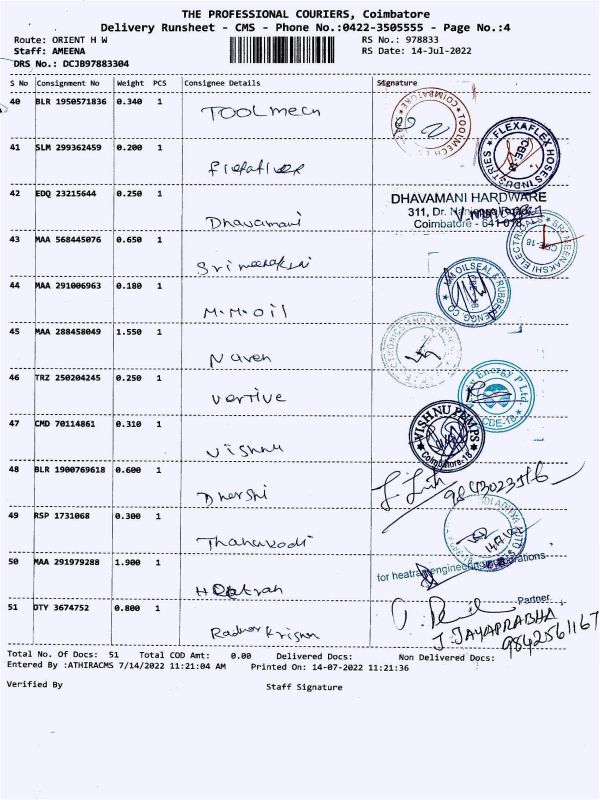 THE PROFESSIONAL COURIERS, Coimbatore
Delivery Runsheet - CMS - Phone No.:0422-3505555 - Page No.:4
Route: ORIENT H W RS No.: 978833
Staff: AMEENA RS Date: 14-Jul-2022
DRS No.: DCJB97883304
S No Consignment No Weight PCS Consignee Details Signature
40 BLR 1950571836 0.340 1 Toolmech
COIMBATORE * TOOLMECH
41 SLM 299362459 0.200 1
FLEXAFLEX HOSES INDUSTRIES CBE-18
42 EDQ 23215644 0.250 1 Dhavamani
DHAVAMANI HARDWARE
311, Dr.
Coimbatore - 641 018.
43 MAA 568445076 0.650 1 Srimeenakshi
SRI MEENAKSHI ELECTRICALS CBE-18
44 MAA 291006963 0.180 1 M.M.Oil
MM OILSEAL & RUBBER ENGG CO
45 MAA 288458049 1.550 1 Naven
46 TRZ 250204245 0.250 1 Vertive
Energy P Ltd. CDE-18
47 CMD 70114861 0.310 1 Vishnu
VISHNU PUMPS Coimbatore-18
48 BLR 1900769618 0.600 1 Dharshi
9843023516
49 RSP 1731068 0.300 1 Thanukodi
50 MAA 291979288 1.900 1
for heatran engineering corporations
51 OTY 3674752 0.800 1 Radha Krishn
Partner
J. JAYAPRABHA
9842561167
Total No. Of Docs: 51 Total COD Amt: 0.00 Delivered Docs: Non Delivered Docs:
Entered By :ATHIRACMS 7/14/2022 11:21:04 AM Printed On: 14-07-2022 11:21:36
Verified By Staff Signature